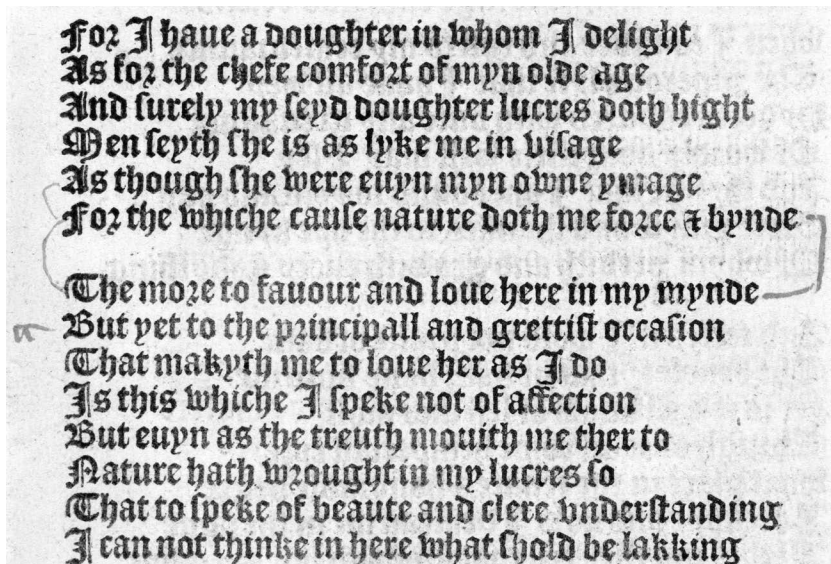 For I haue a doughter in whom I delight
As for the chefe comfort of myn olde age
And ſurely my ſeyd doughter lucres doth hight
Men ſeyth ſhe is as lyke me in viſage
As though ſhe were euyn myn owne ymage
For the whiche cauſe nature doth me force & bynde
The more to fauour and loue here in my mynde
But yet to the principall and grettiſt occaſion
That makyth me to loue her as I do
Is this whiche I ſpeke not of affection
But euyn as the treuth mouith me ther to
Nature hath wrought in my lucres ſo
That to ſpeke of beaute and clere vnderſtanding
I can not thinke in here what ſhold be lakking